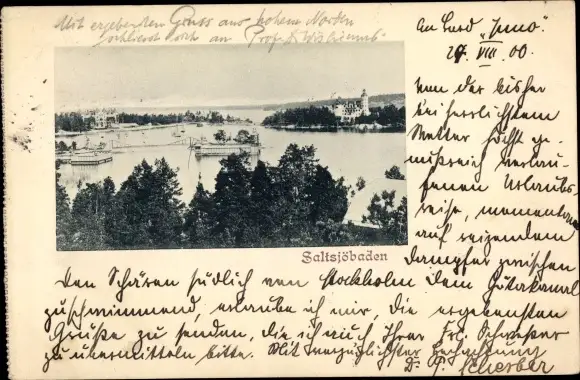 Mit ergebensten Gruss aus hohem Norden
an Prof.
An Bord "Juno".
27. VIII. 00.
Von der bisher
bei herrlichstem
Wetter höchst ge-
nußreich verlau-
fenen Urlaubs-
reise, momentan
auf reizendem
Dampfer zwischen
Saltsjöbaden
den Schären südlich von Stockholm dem Götakanal
zuschwimmend, erlaube ich mir, die ergebensten
Grüße zu senden, die ich auch Ihrer Frl. Schwester
zu übermitteln bitte. Mit vorzüglichster Hochachtung
Dr. Scherber